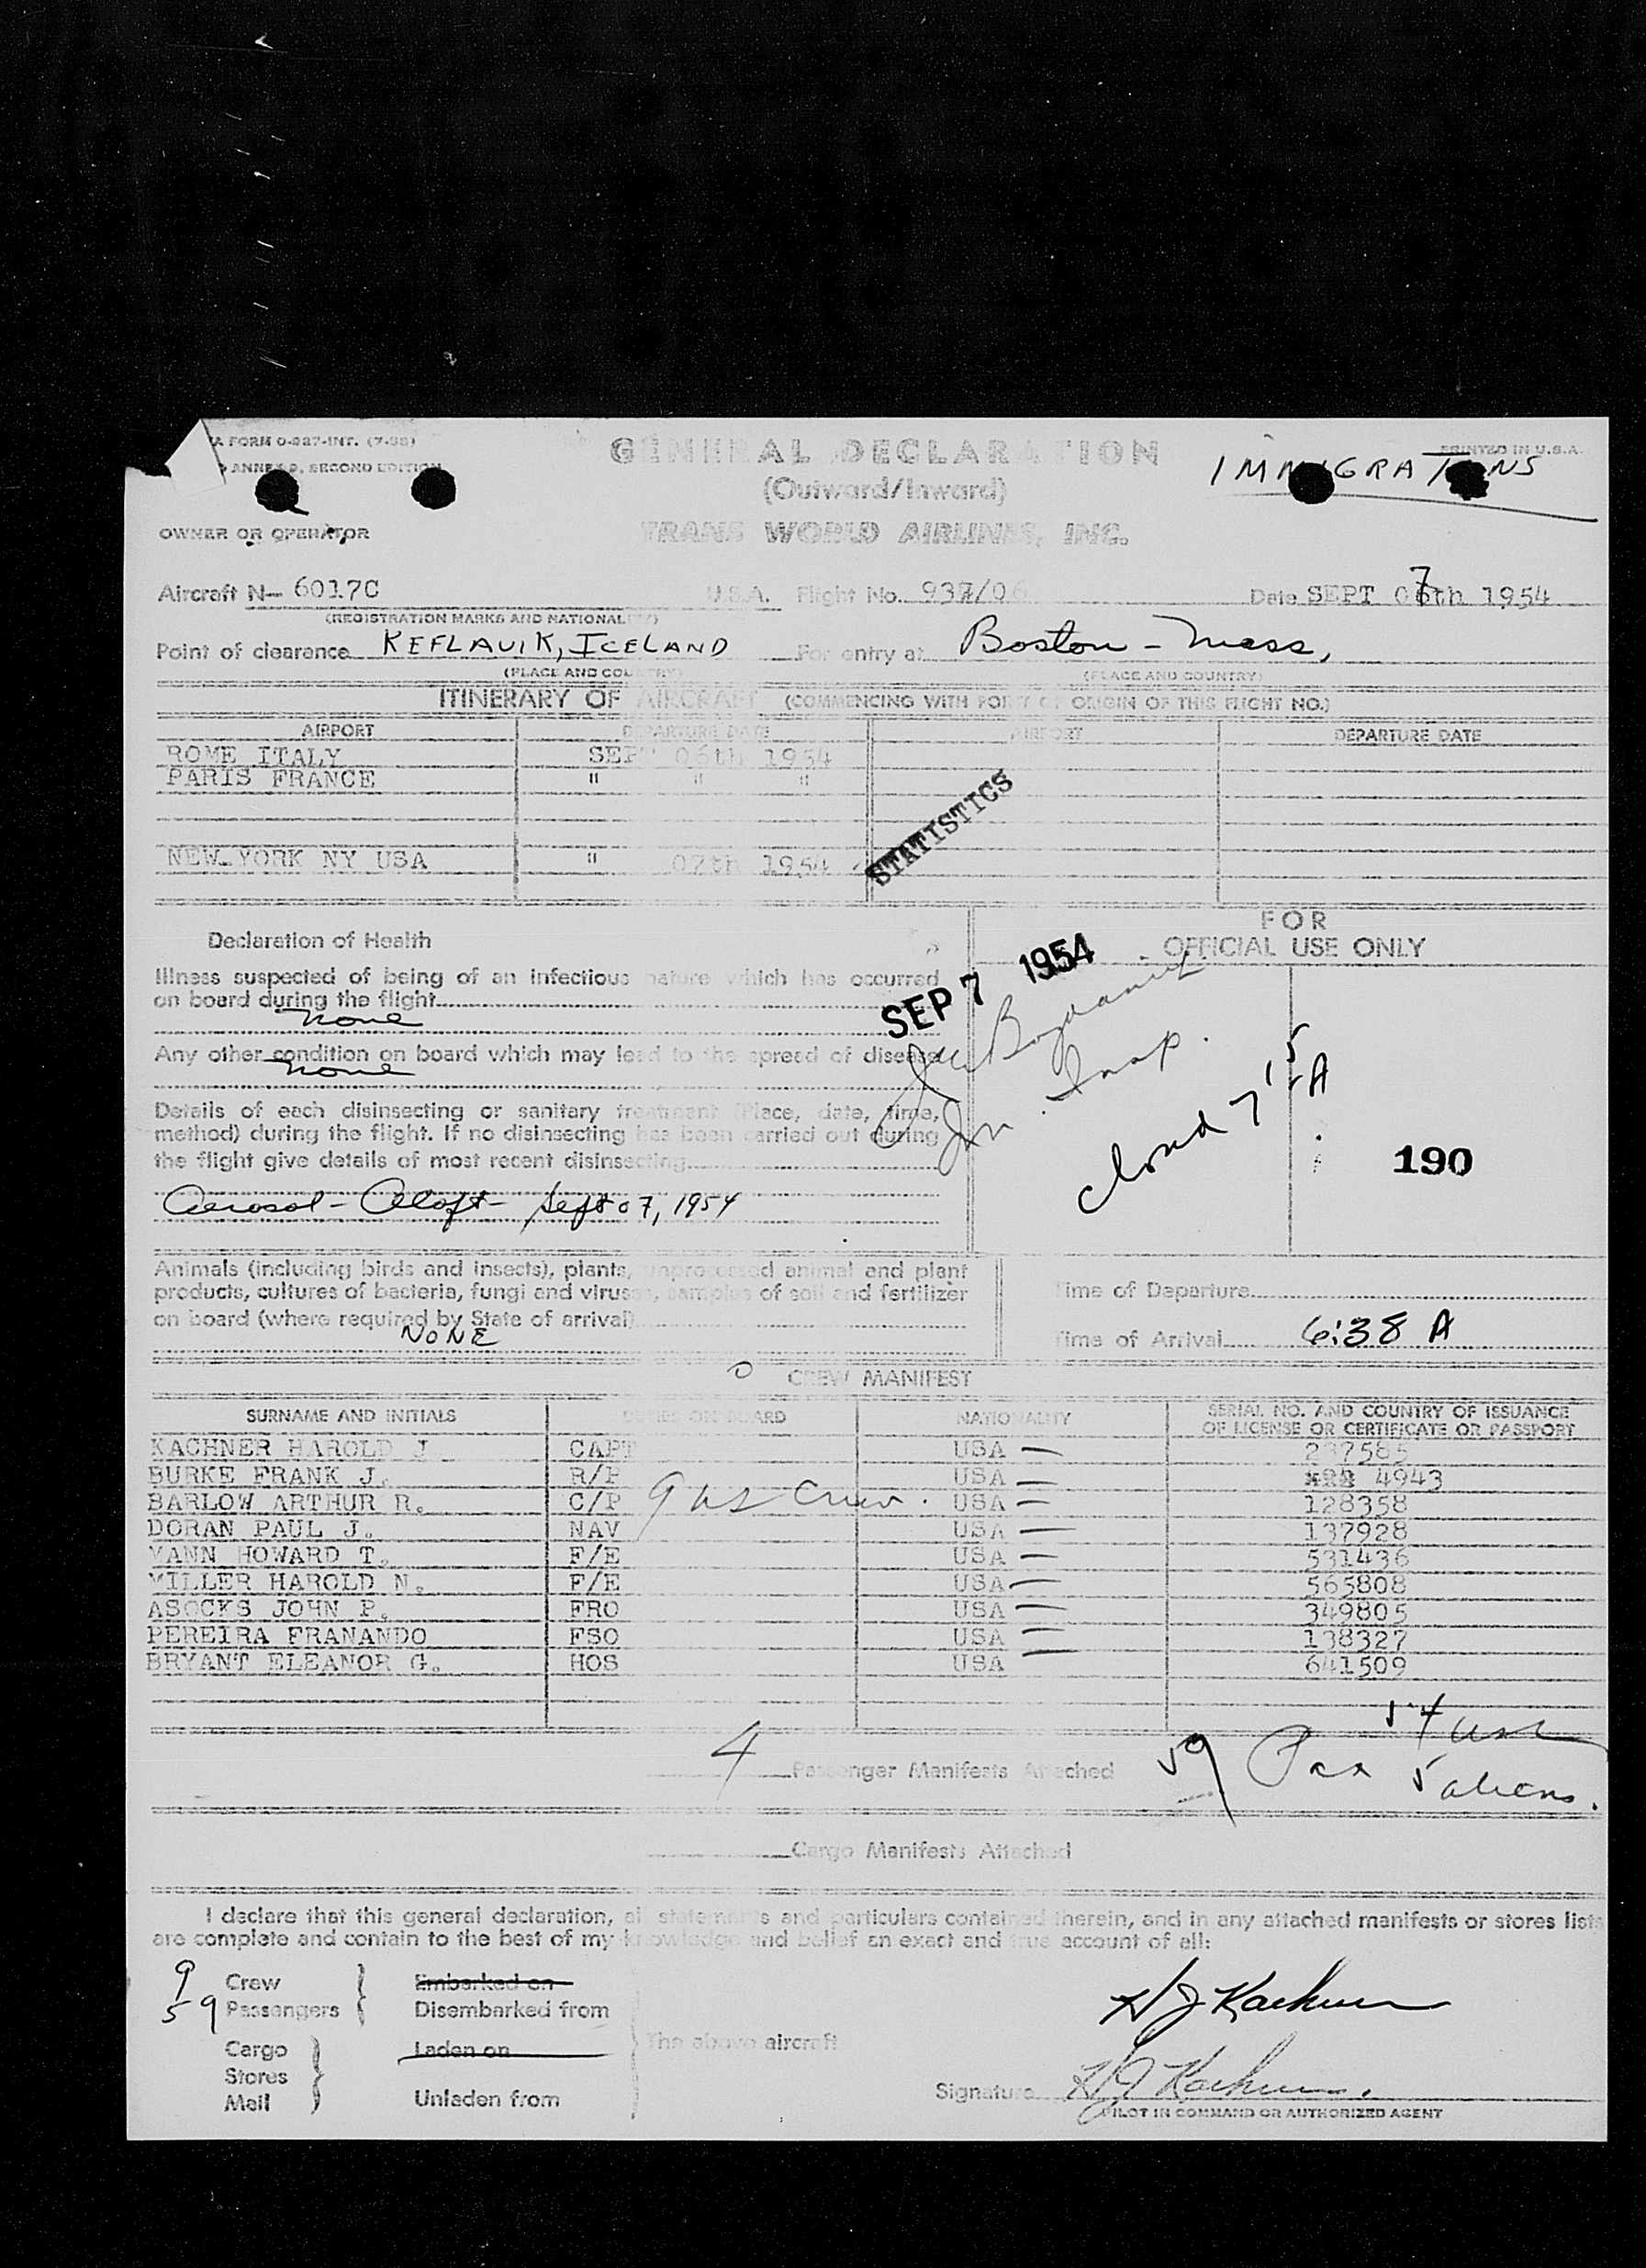 A FORM 0-987-INT. (7-53)
GENERAL DECLARATION
PRINTED IN U.S.A.
ANNEX 9, SECOND EDITION
IMMIGRATIONS
(Outward/Inward)
OWNER OR OPERATOR
TRANS WORLD AIRLINES, INC.
Aircraft N- 6017C U.S.A. Flight No. 937/06 Date SEPT 07th 1954
(REGISTRATION MARKS AND NATIONALITY)
Point of clearance KEFLAVIK, ICELAND For entry at Boston - Mass,
(PLACE AND COUNTRY) (PLACE AND COUNTRY)
ITINERARY OF AIRCRAFT (COMMENCING WITH POINT OF ORIGIN OF THIS FLIGHT NO.)
AIRPORT DEPARTURE DATE AIRPORT DEPARTURE DATE
ROME ITALY SEPT 06th 1954
PARIS FRANCE " " "
STATISTICS
NEW YORK NY USA " 07th 1954
FOR
OFFICIAL USE ONLY
Declaration of Health
Illness suspected of being of an infectious nature which has occurred
on board during the flight
none
SEP 7 1954
Any other condition on board which may lead to the spread of disease
none
Im. Insp.
7 15 A
Details of each disinsecting or sanitary treatment (Place, date, time,
method) during the flight. If no disinsecting has been carried out during
the flight give details of most recent disinsecting
190
Aerosol - Aloft - Sept 07, 1954
Animals (including birds and insects), plants, unprocessed animal and plant
products, cultures of bacteria, fungi and viruses, samples of soil and fertilizer
on board (where required by State of arrival)
NONE
Time of Departure
Time of Arrival 6:38 A
CREW MANIFEST
SURNAME AND INITIALS DUTIES ON BOARD NATIONALITY SERIAL NO. AND COUNTRY OF ISSUANCE
OF LICENSE OR CERTIFICATE OR PASSPORT
KACHNER HAROLD J CAPT USA 237585
BURKE FRANK J. R/P USA 4943
BARLOW ARTHUR R. C/P USA 128358
9 US Crew.
DORAN PAUL J. NAV USA 137928
MANN HOWARD T. F/E USA 531436
MILLER HAROLD N. F/E USA 565808
ASOCKS JOHN P. FRO USA 349805
PEREIRA FRANANDO FSO USA 138327
BRYANT ELEANOR G. HOS USA 641509
54 USC
4 Passenger Manifests Attached 59 Pax 5 aliens.
Cargo Manifests Attached
I declare that this general declaration, all statements and particulars contained therein, and in any attached manifests or stores lists
are complete and contain to the best of my knowledge and belief an exact and true account of all:
9 Crew Embarked on
59 Passengers Disembarked from
H J Kachner
Cargo Laden on
The above aircraft
Stores
Mail Unladen from
Signature H J Kachner
PILOT IN COMMAND OR AUTHORIZED AGENT